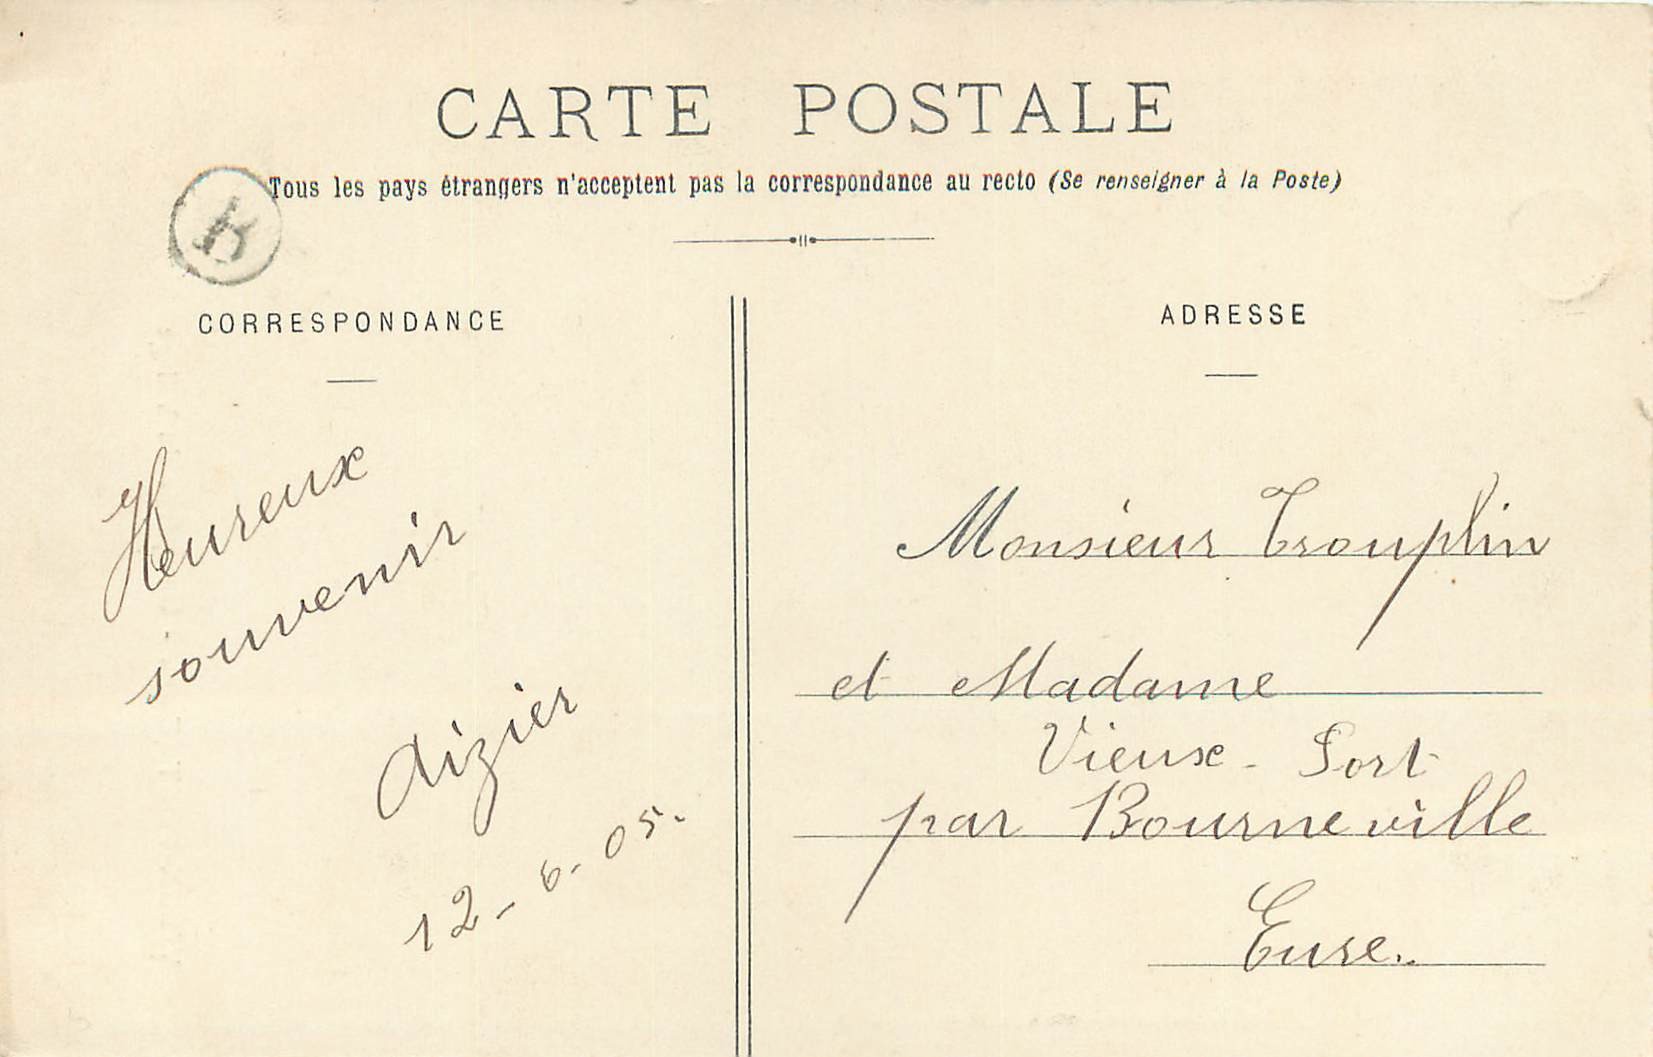 CARTE POSTALE
Tous les pays étrangers n'acceptent pas la correspondance au recto (Se renseigner à la Poste)
B
CORRESPONDANCE
Heureux
souvenir
Aizier
12-6-05.
ADRESSE
Monsieur Trouplin
et Madame
Vieux-Port
par Bourneville
Eure..